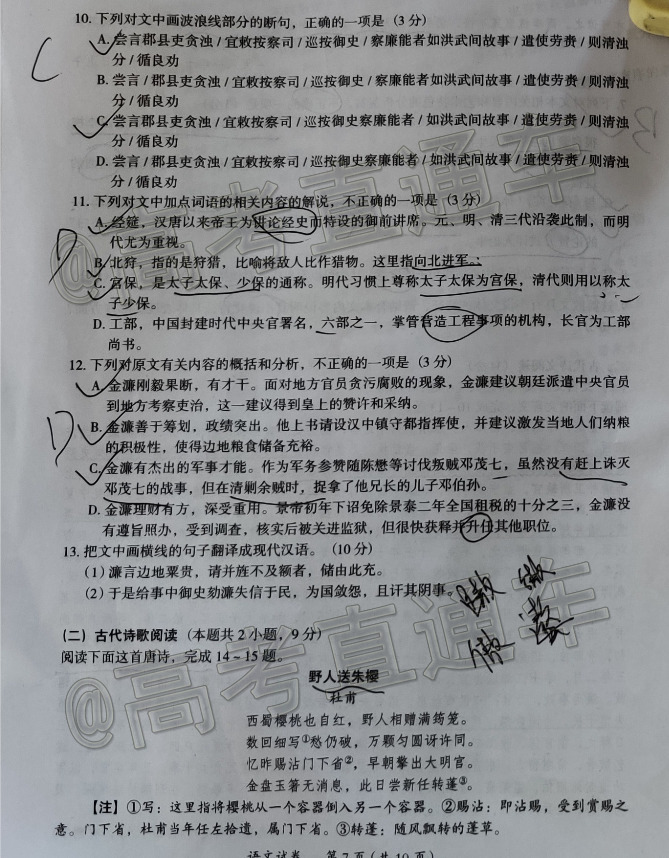 10. 下列对文中画波浪线部分的断句，正确的一项是（3 分）
C
A. 尝言郡县吏贪浊 / 宜敕按察司 / 巡按御史 / 察廉能者如洪武间故事 / 遣使劳赉 / 则清浊
分 / 循良劝
B. 尝言 / 郡县吏贪浊 / 宜敕按察司 / 巡按御史 / 察廉能者如洪武间故事 / 遣使劳赉 / 则清浊
分 / 循良劝
C. 尝言郡县吏贪浊 / 宜敕按察司 / 巡按御史察廉能者 / 如洪武间故事 / 遣使劳赉 / 则清浊
分 / 循良劝
D. 尝言 / 郡县吏贪浊 / 宜敕按察司 / 巡按御史察廉能者 / 如洪武间故事 / 遣使劳赉 / 则清浊
分 / 循良劝
11. 下列对文中加点词语的相关内容的解说，不正确的一项是（3 分）
D
A. 经筵，汉唐以来帝王为讲论经史而特设的御前讲席。元、明、清三代沿袭此制，而明
代尤为重视。
B. 北狩，指的是狩猎，比喻将敌人比作猎物。这里指向北进军。
C. 宫保，是太子太保、少保的通称。明代习惯上尊称太子太保为宫保，清代则用以称太
子少保。
D. 工部，中国封建时代中央官署名，六部之一，掌管营造工程事项的机构，长官为工部
尚书。
12. 下列对原文有关内容的概括和分析，不正确的一项是（3 分）
D
A. 金濂刚毅果断，有才干。面对地方官员贪污腐败的现象，金濂建议朝廷派遣中央官员
到地方考察吏治，这一建议得到皇上的赞许和采纳。
B. 金濂善于筹划，政绩突出。他上书请设汉中镇守都指挥使，并建议激发当地人们纳粮
的积极性，使得边地粮食储备充裕。
C. 金濂有杰出的军事才能。作为军务参赞随陈懋等讨伐叛贼邓茂七，虽然没有赶上诛灭
邓茂七的战事，但在清剿余贼时，捉拿了他兄长的儿子邓伯孙。
D. 金濂理财有方，深受重用。景帝初年下诏免除景泰二年全国租税的十分之三，金濂没
有遵旨照办，受到调查，核实后被关进监狱，但很快获释并升任其他职位。
13. 把文中画横线的句子翻译成现代汉语。（10 分）
（1）濂言边地粟贵，请并旌不及额者，储由此充。
（2）于是给事中御史劾濂失信于民，为国敛怨，且讦其阴事。
（二）古代诗歌阅读（本题共 2 小题，9 分）
阅读下面这首唐诗，完成 14～15 题。
野人送朱樱
杜甫
西蜀樱桃也自红，野人相赠满筠笼。
数回细写①愁仍破，万颗匀圆讶许同。
忆昨赐沾门下省②，早朝擎出大明宫。
金盘玉箸无消息，此日尝新任转蓬③。
【注】①写：这里指将樱桃从一个容器倒入另一个容器。②赐沾：即沾赐，受到赏赐之
意。门下省，杜甫当年任左拾遗，属门下省。③转蓬：随风飘转的蓬草。
语文试卷 第 7 页（共 10 页）
@高考直通车
@高考直通车